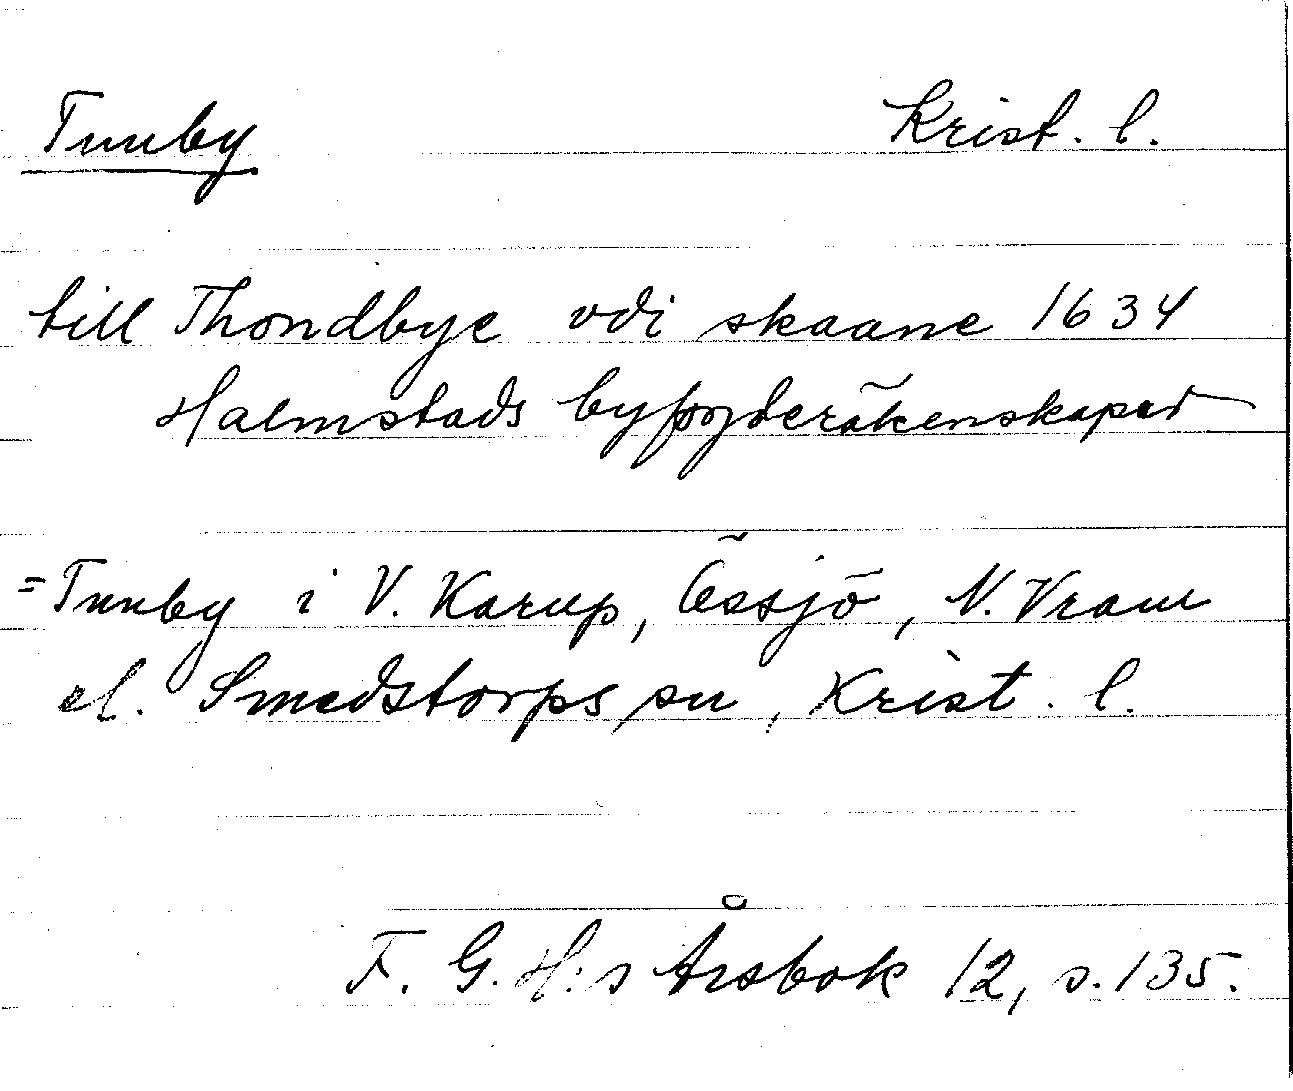 Tunby Krist. l.
till Thondbye vdi skaane 1634
Halmstads byfogderäkenskaper
= Tunby i V. Karup, Össjö, N. Vram
el. Smedstorps sn, Krist. l.
F. G. H:s Årsbok 12, s. 135.